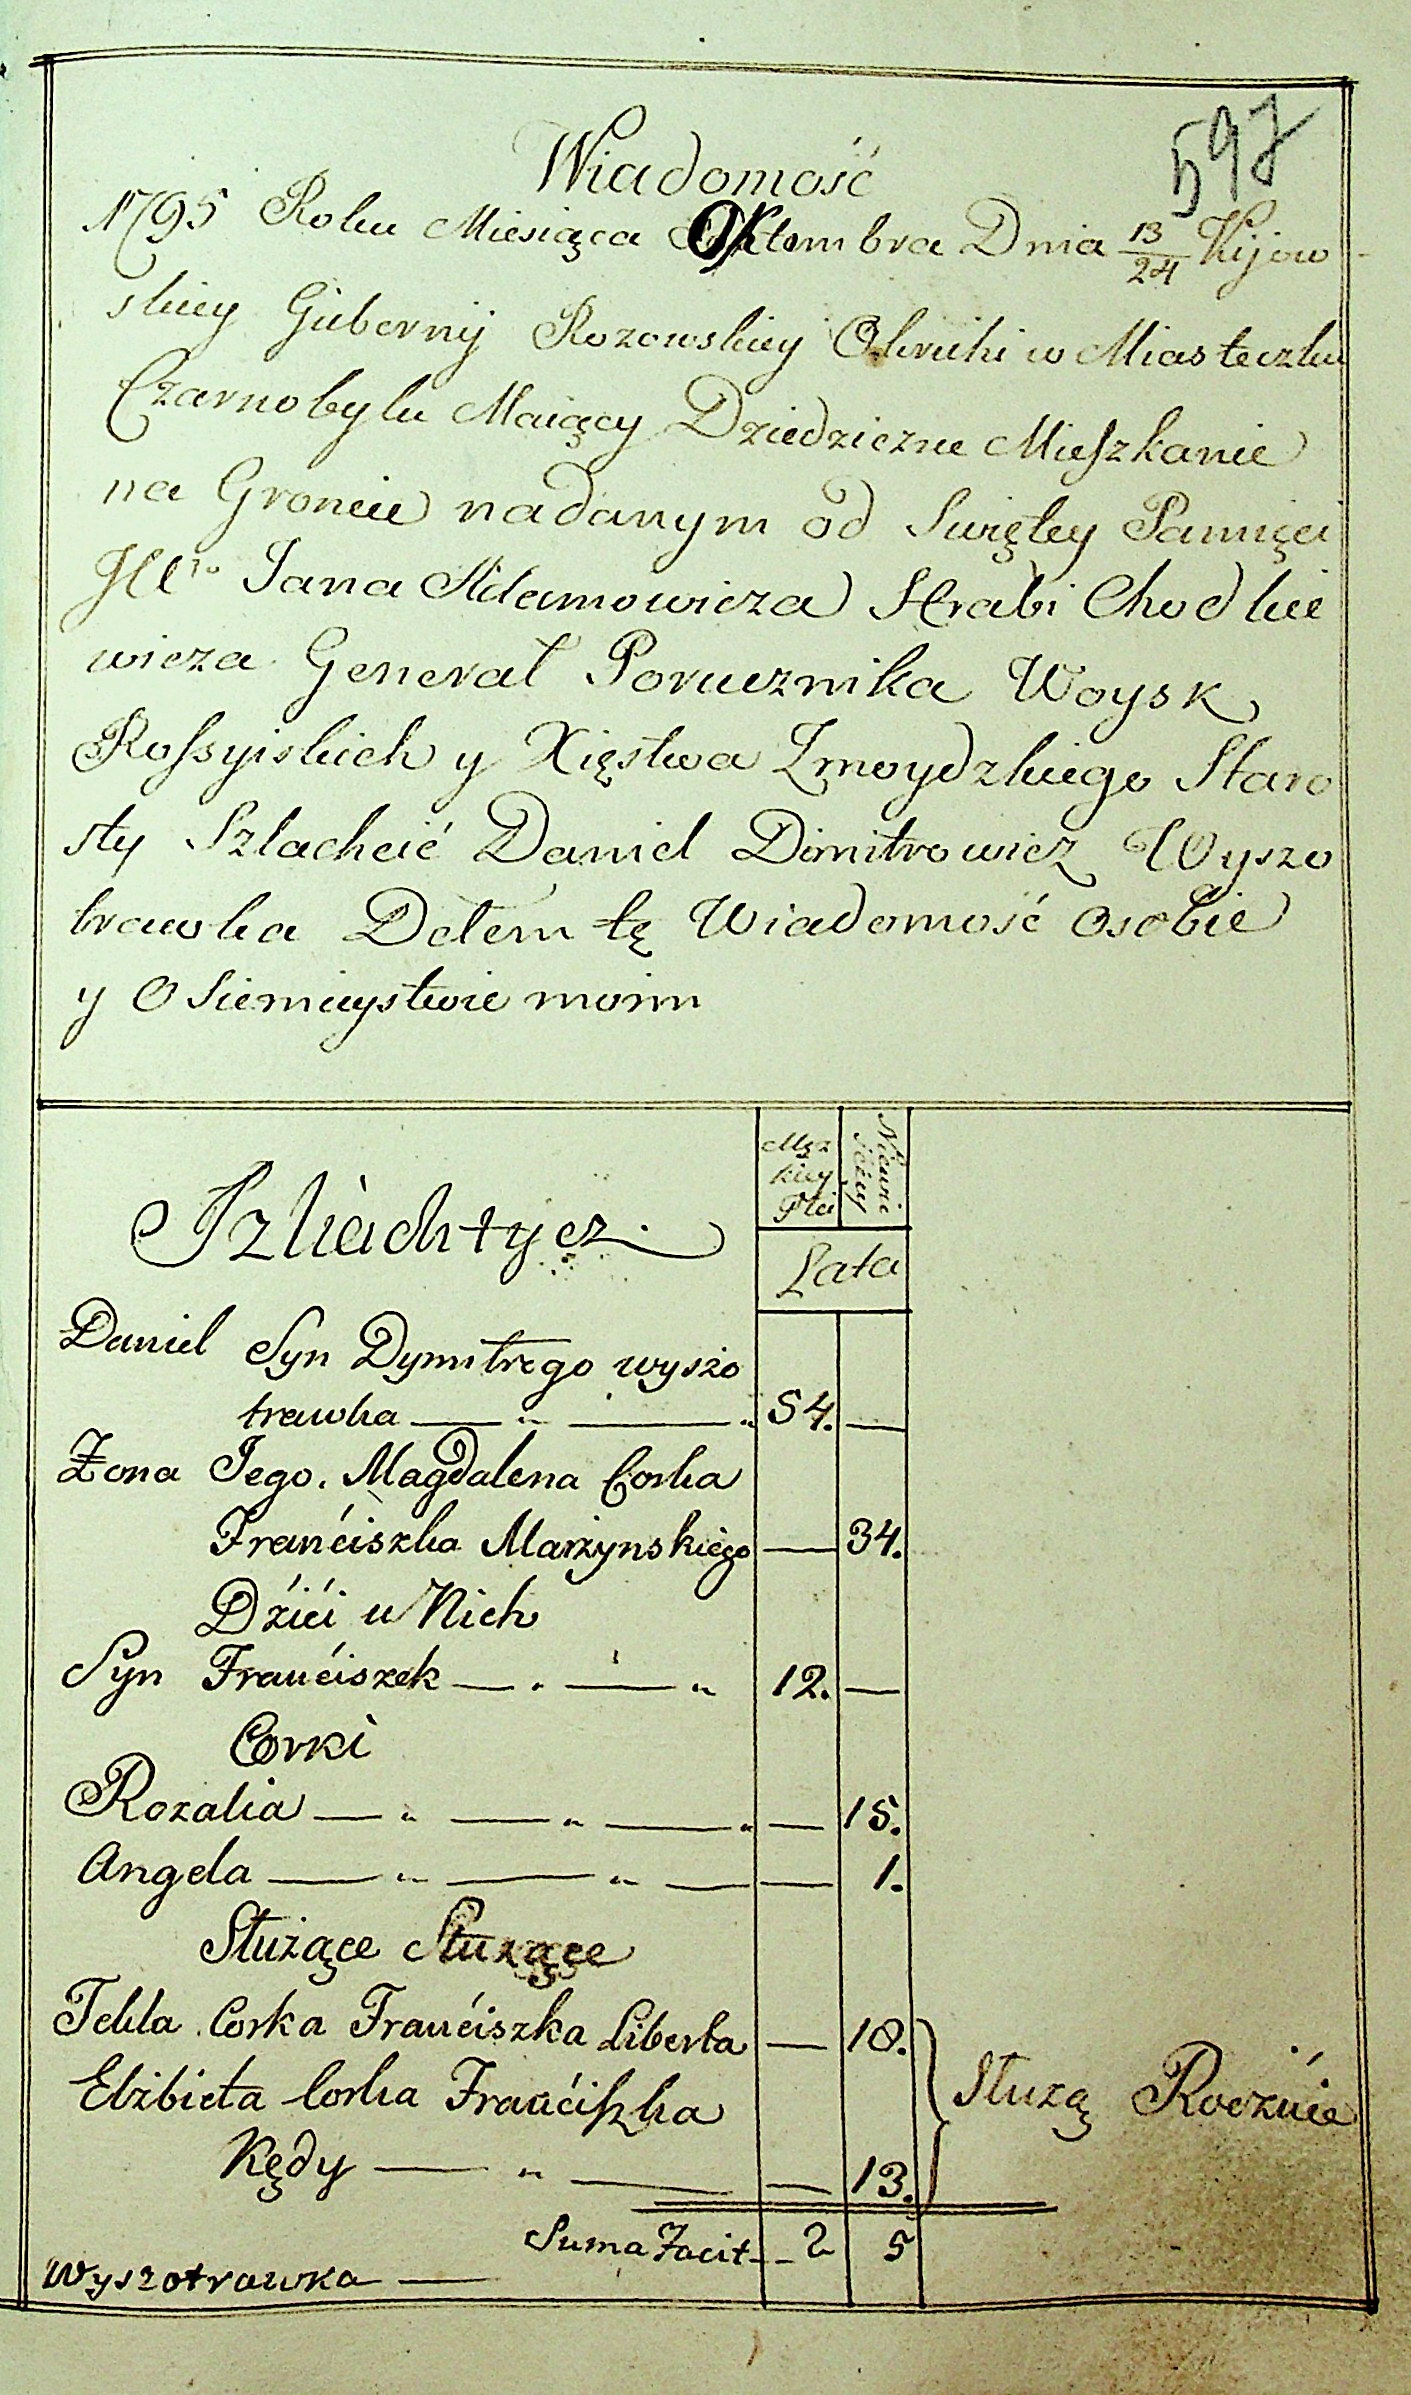 597
Wiadomość
1795 Roku Miesiąca Oktombra Dnia 13/24 Kijow-
skiey Gubernij Rozowskiey Okruhi w Miasteczku
Czarnobylu Maiący Dziedziczne Mieszkanie
na Groncie nadanym od Swiętey Pamięci
Jana Adamowicza Hrabi Chodkie
wicza General Porucznika Woysk
Rossyiskich y Xięstwa Zmoydzkiego Staro
sty Szlachcić Daniel Dimitrowicz Wyszo
trawka Dałem tę Wiadomość osobie
y O Siemieystwie moim
Męz
kiey
Płci
Niewie
sciey
Szliachtycz
Lata
Daniel Syn Dymitrego wyszo
trawka — „ — „ 54. —
Zona Jego. Magdalena Corka
Franćiszka Marzynskiego — 34.
Dźići u Nich
Syn Franćiszek — . — „ 12. —
Corki
Rozalia — „ — „ — „ — 15.
Angela — „ — „ — — 1.
Służące Służące
Tekla Corka Franćiszka Liberta — 18.
Elżbieta Corka Franćiszka
Kędy — „ — — 13.
Służą Rocznie
Suma Facit - - 2 5
Wyszotrawka —